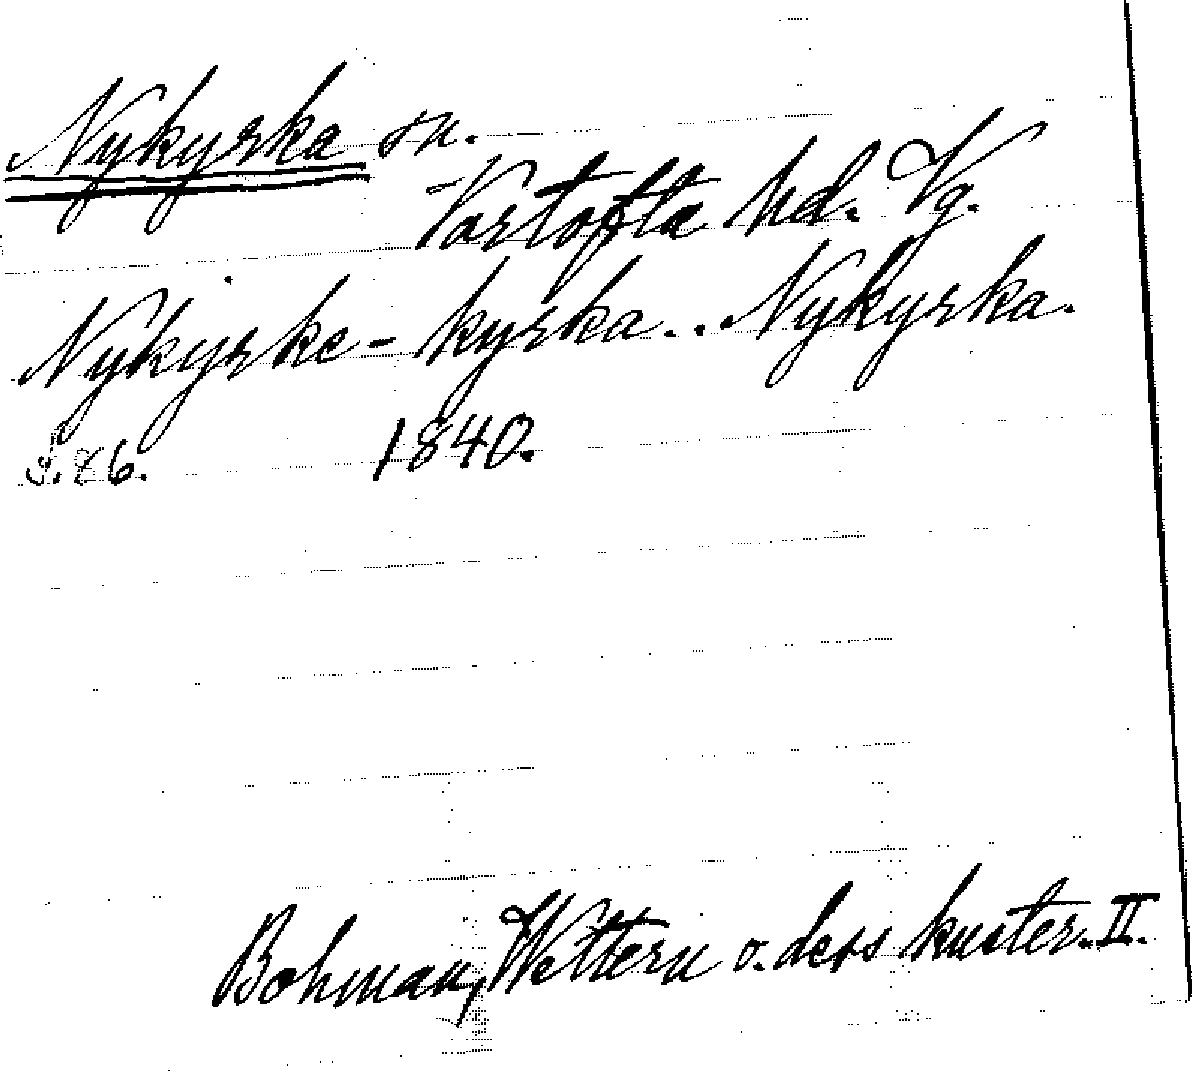 Nykyrka sn.
Vartofta hd. Vg.
Nykyrke-kyrka... Nykyrka.
S. 86. 1840.
Bohman, Wettern o. dess kuster. II.